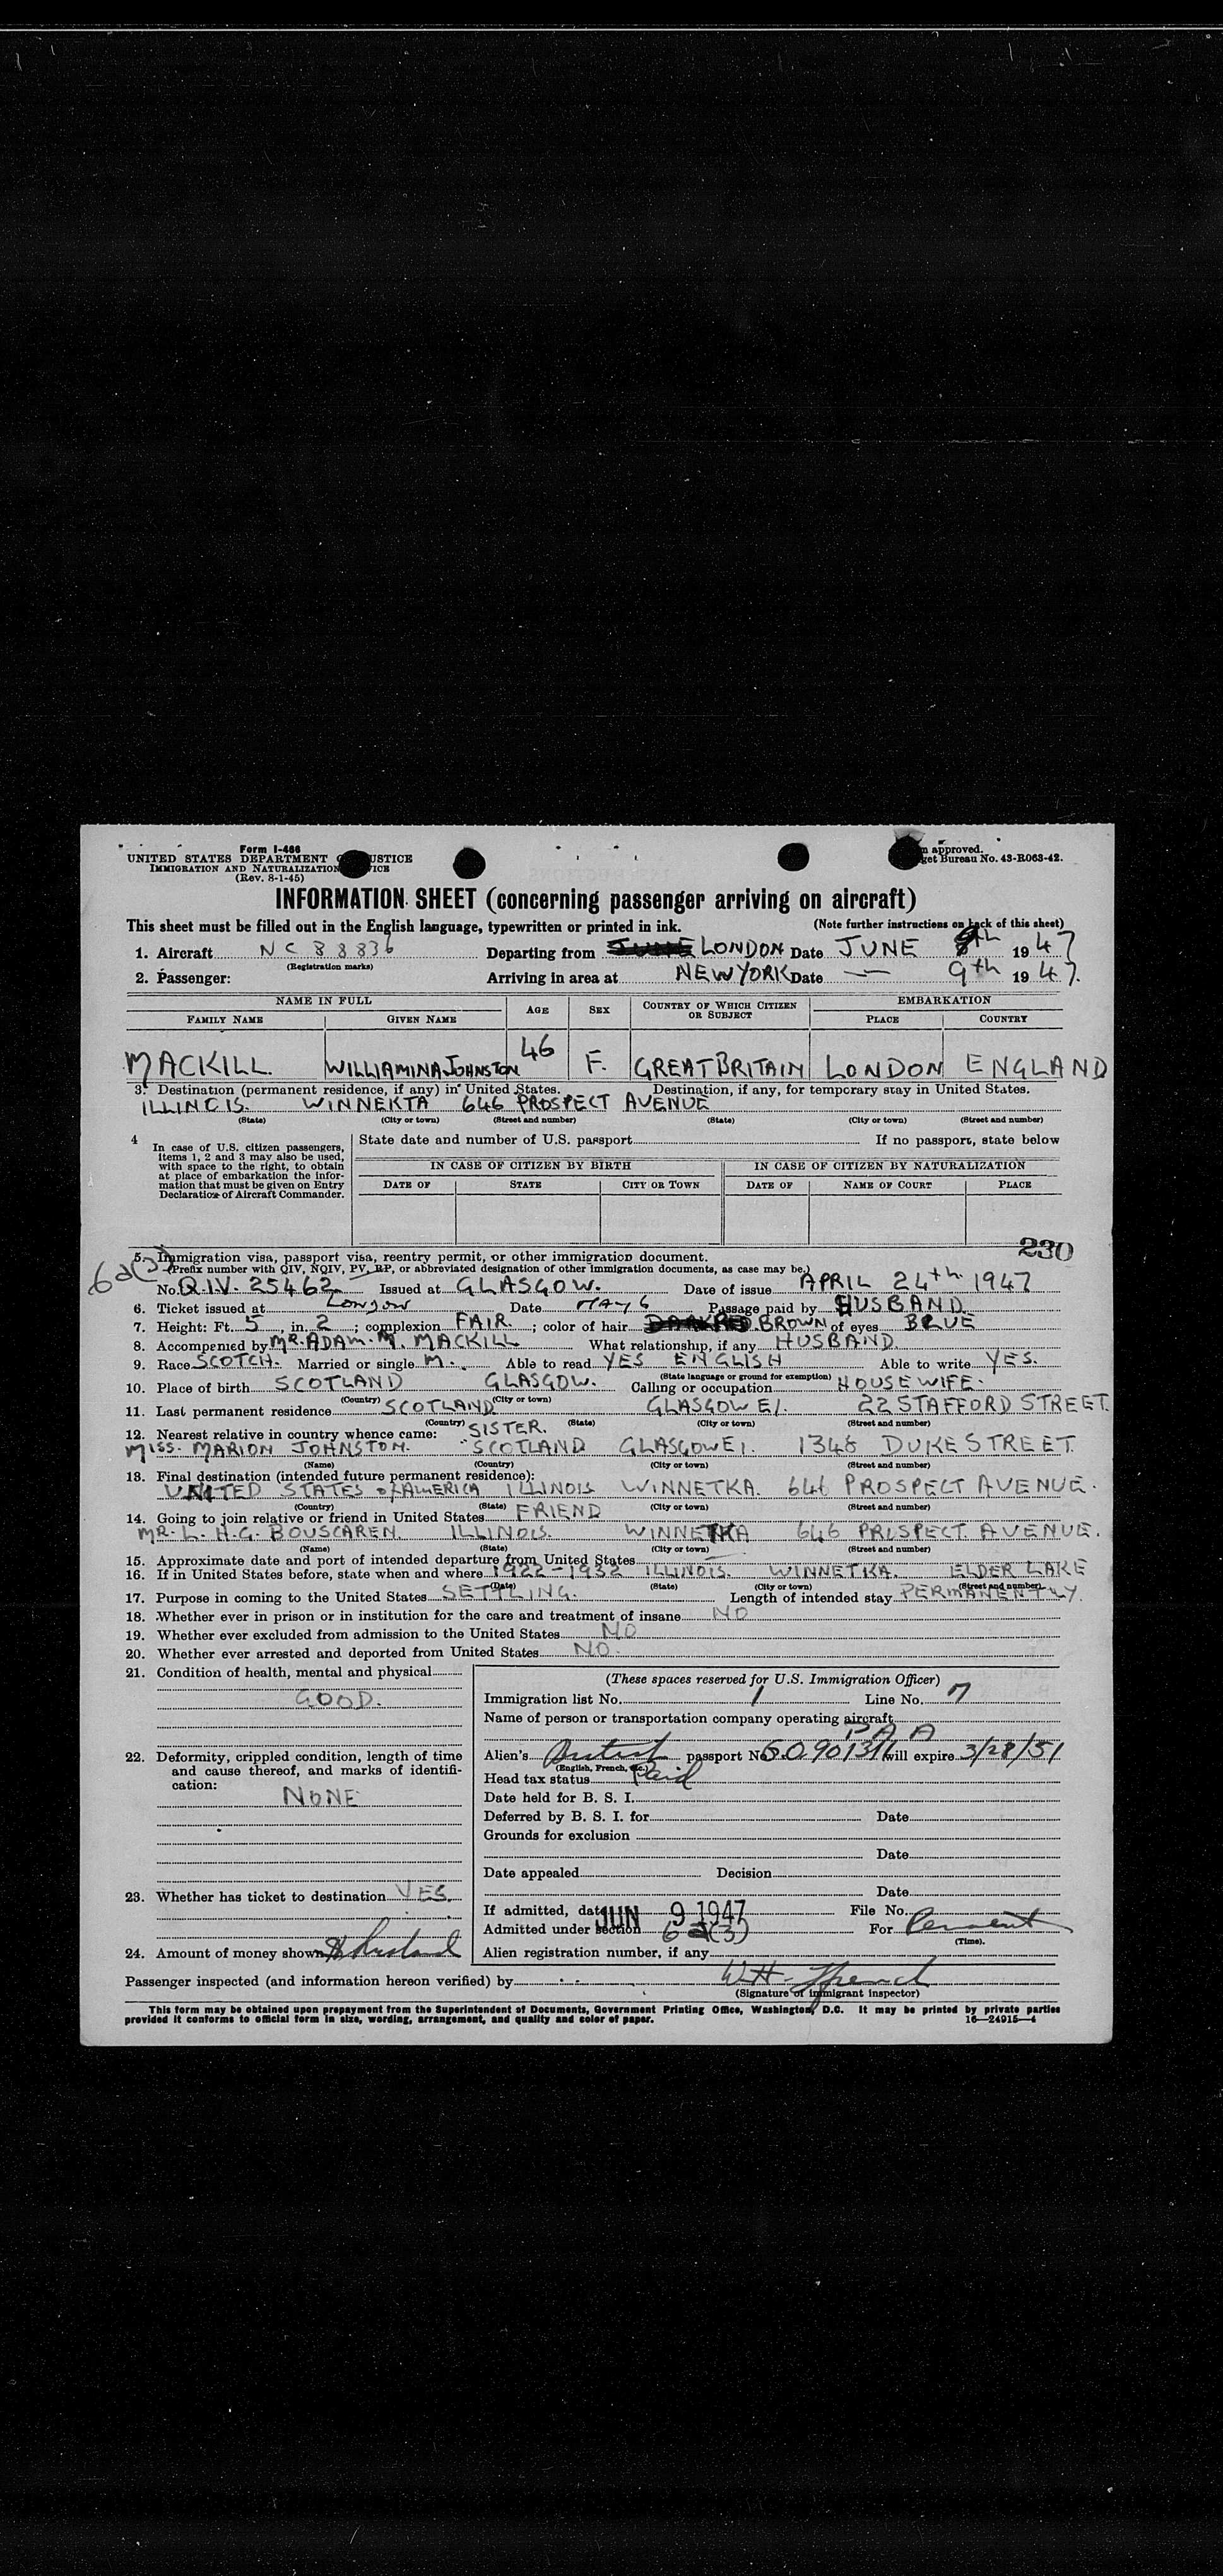 Form I-466
UNITED STATES DEPARTMENT JUSTICE
IMMIGRATION AND NATURALIZATION
(Rev. 8-1-45)
approved.
get Bureau No. 43-R063-42.
INFORMATION SHEET (concerning passenger arriving on aircraft)
This sheet must be filled out in the English language, typewritten or printed in ink. (Note further instructions on back of this sheet)
1. Aircraft NC 88836 Departing from LONDON Date JUNE 8th 1947
(Registration marks)
2. Passenger: Arriving in area at NEW YORK Date — 9th 1947.
NAME IN FULL AGE SEX COUNTRY OF WHICH CITIZEN OR SUBJECT EMBARKATION
FAMILY NAME GIVEN NAME PLACE COUNTRY
MACKILL WILLIAMINA JOHNSTON 46 F. GREAT BRITAIN LONDON ENGLAND
3. Destination (permanent residence, if any) in United States. Destination, if any, for temporary stay in United States.
ILLINOIS. WINNEKTA 646 PROSPECT AVENUE
(State) (City or town) (Street and number) (State) (City or town) (Street and number)
4 In case of U.S. citizen passengers, items 1, 2 and 3 may also be used, with space to the right, to obtain at place of embarkation the information that must be given on Entry Declaration of Aircraft Commander.
State date and number of U.S. passport If no passport, state below
IN CASE OF CITIZEN BY BIRTH IN CASE OF CITIZEN BY NATURALIZATION
DATE OF STATE CITY OR TOWN DATE OF NAME OF COURT PLACE
230
6a(3)
5. Immigration visa, passport visa, reentry permit, or other immigration document.
(Prefix number with QIV, NQIV, PV, RP, or abbreviated designation of other immigration documents, as case may be.)
No. Q.I.V. 25462 Issued at GLASGOW. Date of issue APRIL 24th 1947
6. Ticket issued at London Date MAY 6 Passage paid by HUSBAND
7. Height: Ft. 5 in. 2; complexion FAIR.; color of hair BROWN of eyes BLUE
8. Accompanied by MR. ADAM. M. MACKILL What relationship, if any HUSBAND.
9. Race SCOTCH. Married or single M. Able to read YES ENGLISH Able to write YES.
(State language or ground for exemption)
10. Place of birth SCOTLAND GLASGOW. Calling or occupation HOUSEWIFE.
(Country) (City or town)
11. Last permanent residence SCOTLAND GLASGOW E1. 22 STAFFORD STREET.
(Country) (State) (City or town) (Street and number)
12. Nearest relative in country whence came: SISTER.
MISS. MARION JOHNSTON. SCOTLAND GLASGOW E1. 1348 DUKE STREET
(Name) (Country) (City or town) (Street and number)
13. Final destination (intended future permanent residence):
UNITED STATES of AMERICA ILLINOIS WINNETKA. 646 PROSPECT AVENUE.
(Country) (State) (City or town) (Street and number)
14. Going to join relative or friend in United States FRIEND
MR. L. H. G. BOUSCAREN ILLINOIS. WINNETKA 646 PROSPECT AVENUE.
(Name) (State) (City or town) (Street and number)
15. Approximate date and port of intended departure from United States
16. If in United States before, state when and where 1922-1932 ILLINOIS. WINNETKA. ELDER LAKE
(Date) (State) (City or town) (Street and number)
17. Purpose in coming to the United States SETTLING. Length of intended stay PERMANENTLY.
18. Whether ever in prison or in institution for the care and treatment of insane NO
19. Whether ever excluded from admission to the United States NO
20. Whether ever arrested and deported from United States NO.
21. Condition of health, mental and physical
GOOD.
22. Deformity, crippled condition, length of time and cause thereof, and marks of identification:
NONE
23. Whether has ticket to destination YES.
24. Amount of money shown $ husband
(These spaces reserved for U.S. Immigration Officer)
Immigration list No. 1 Line No. 7
Name of person or transportation company operating aircraft
PAA
Alien's British passport No. will expire 3/28/51
(English, French, etc.)
Head tax status Paid
Date held for B. S. I.
Deferred by B. S. I. for Date
Grounds for exclusion
Date
Date appealed Decision
Date
If admitted, date JUN 9 1947 File No.
Admitted under section 6a(3) For Permanent
(Time).
Alien registration number, if any
Passenger inspected (and information hereon verified) by W.H. French
(Signature of immigrant inspector)
This form may be obtained upon prepayment from the Superintendent of Documents, Government Printing Office, Washington, D.C. It may be printed by private parties
provided it conforms to official form in size, wording, arrangement, and quality and color of paper. 16—24915-4